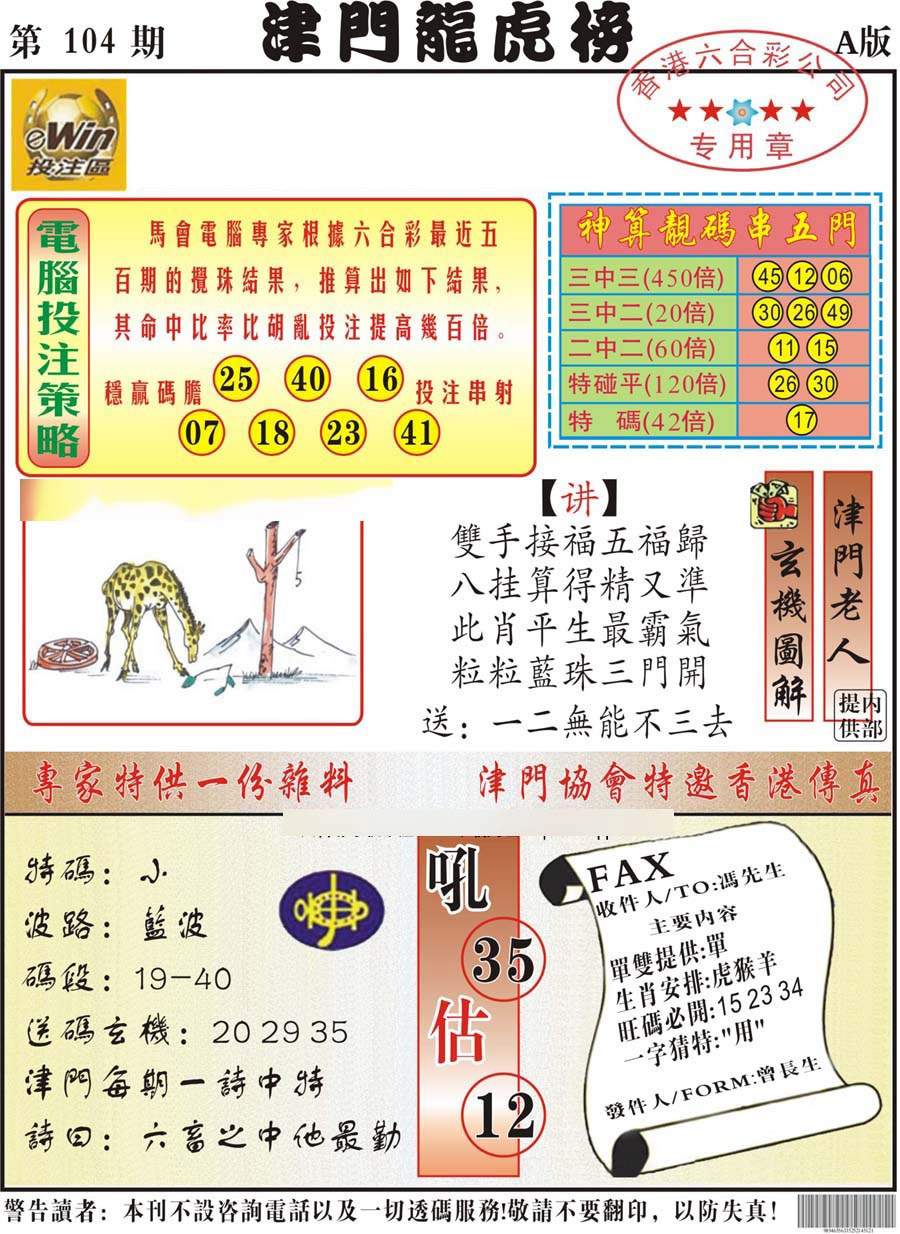 第 104 期
津門龍虎榜
A版
香港六合彩公司
专用章
eWin
投注區
電腦投注策略
馬會電腦專家根據六合彩最近五
百期的攪珠結果，推算出如下結果，
其命中比率比胡亂投注提高幾百倍。
穩贏碼膽 25 40 16 投注串射
07 18 23 41
神算靚碼串五門
三中三(450倍) 45 12 06
三中二(20倍) 30 26 49
二中二(60倍) 11 15
特碰平(120倍) 26 30
特 碼(42倍) 17
5
【讲】
雙手接福五福歸
八挂算得精又準
此肖平生最霸氣
粒粒藍珠三門開
送：一二無能不三去
玄機圖解
津門老人
內部提供
專家特供一份雜料
津門協會特邀香港傳真
特碼：小
波路：藍波
碼段：19-40
送碼玄機：20 29 35
津門每期一詩中特
詩曰：六畜之中他最勤
吼
35
估
12
FAX
收件人/TO:馮先生
主要内容
單雙提供:單
生肖安排:虎猴羊
旺碼必開:15 23 34
一字猜特:"用"
發件人/FORM:曾長生
警告讀者：本刊不設咨詢電話以及一切透碼服務!敬請不要翻印，以防失真!